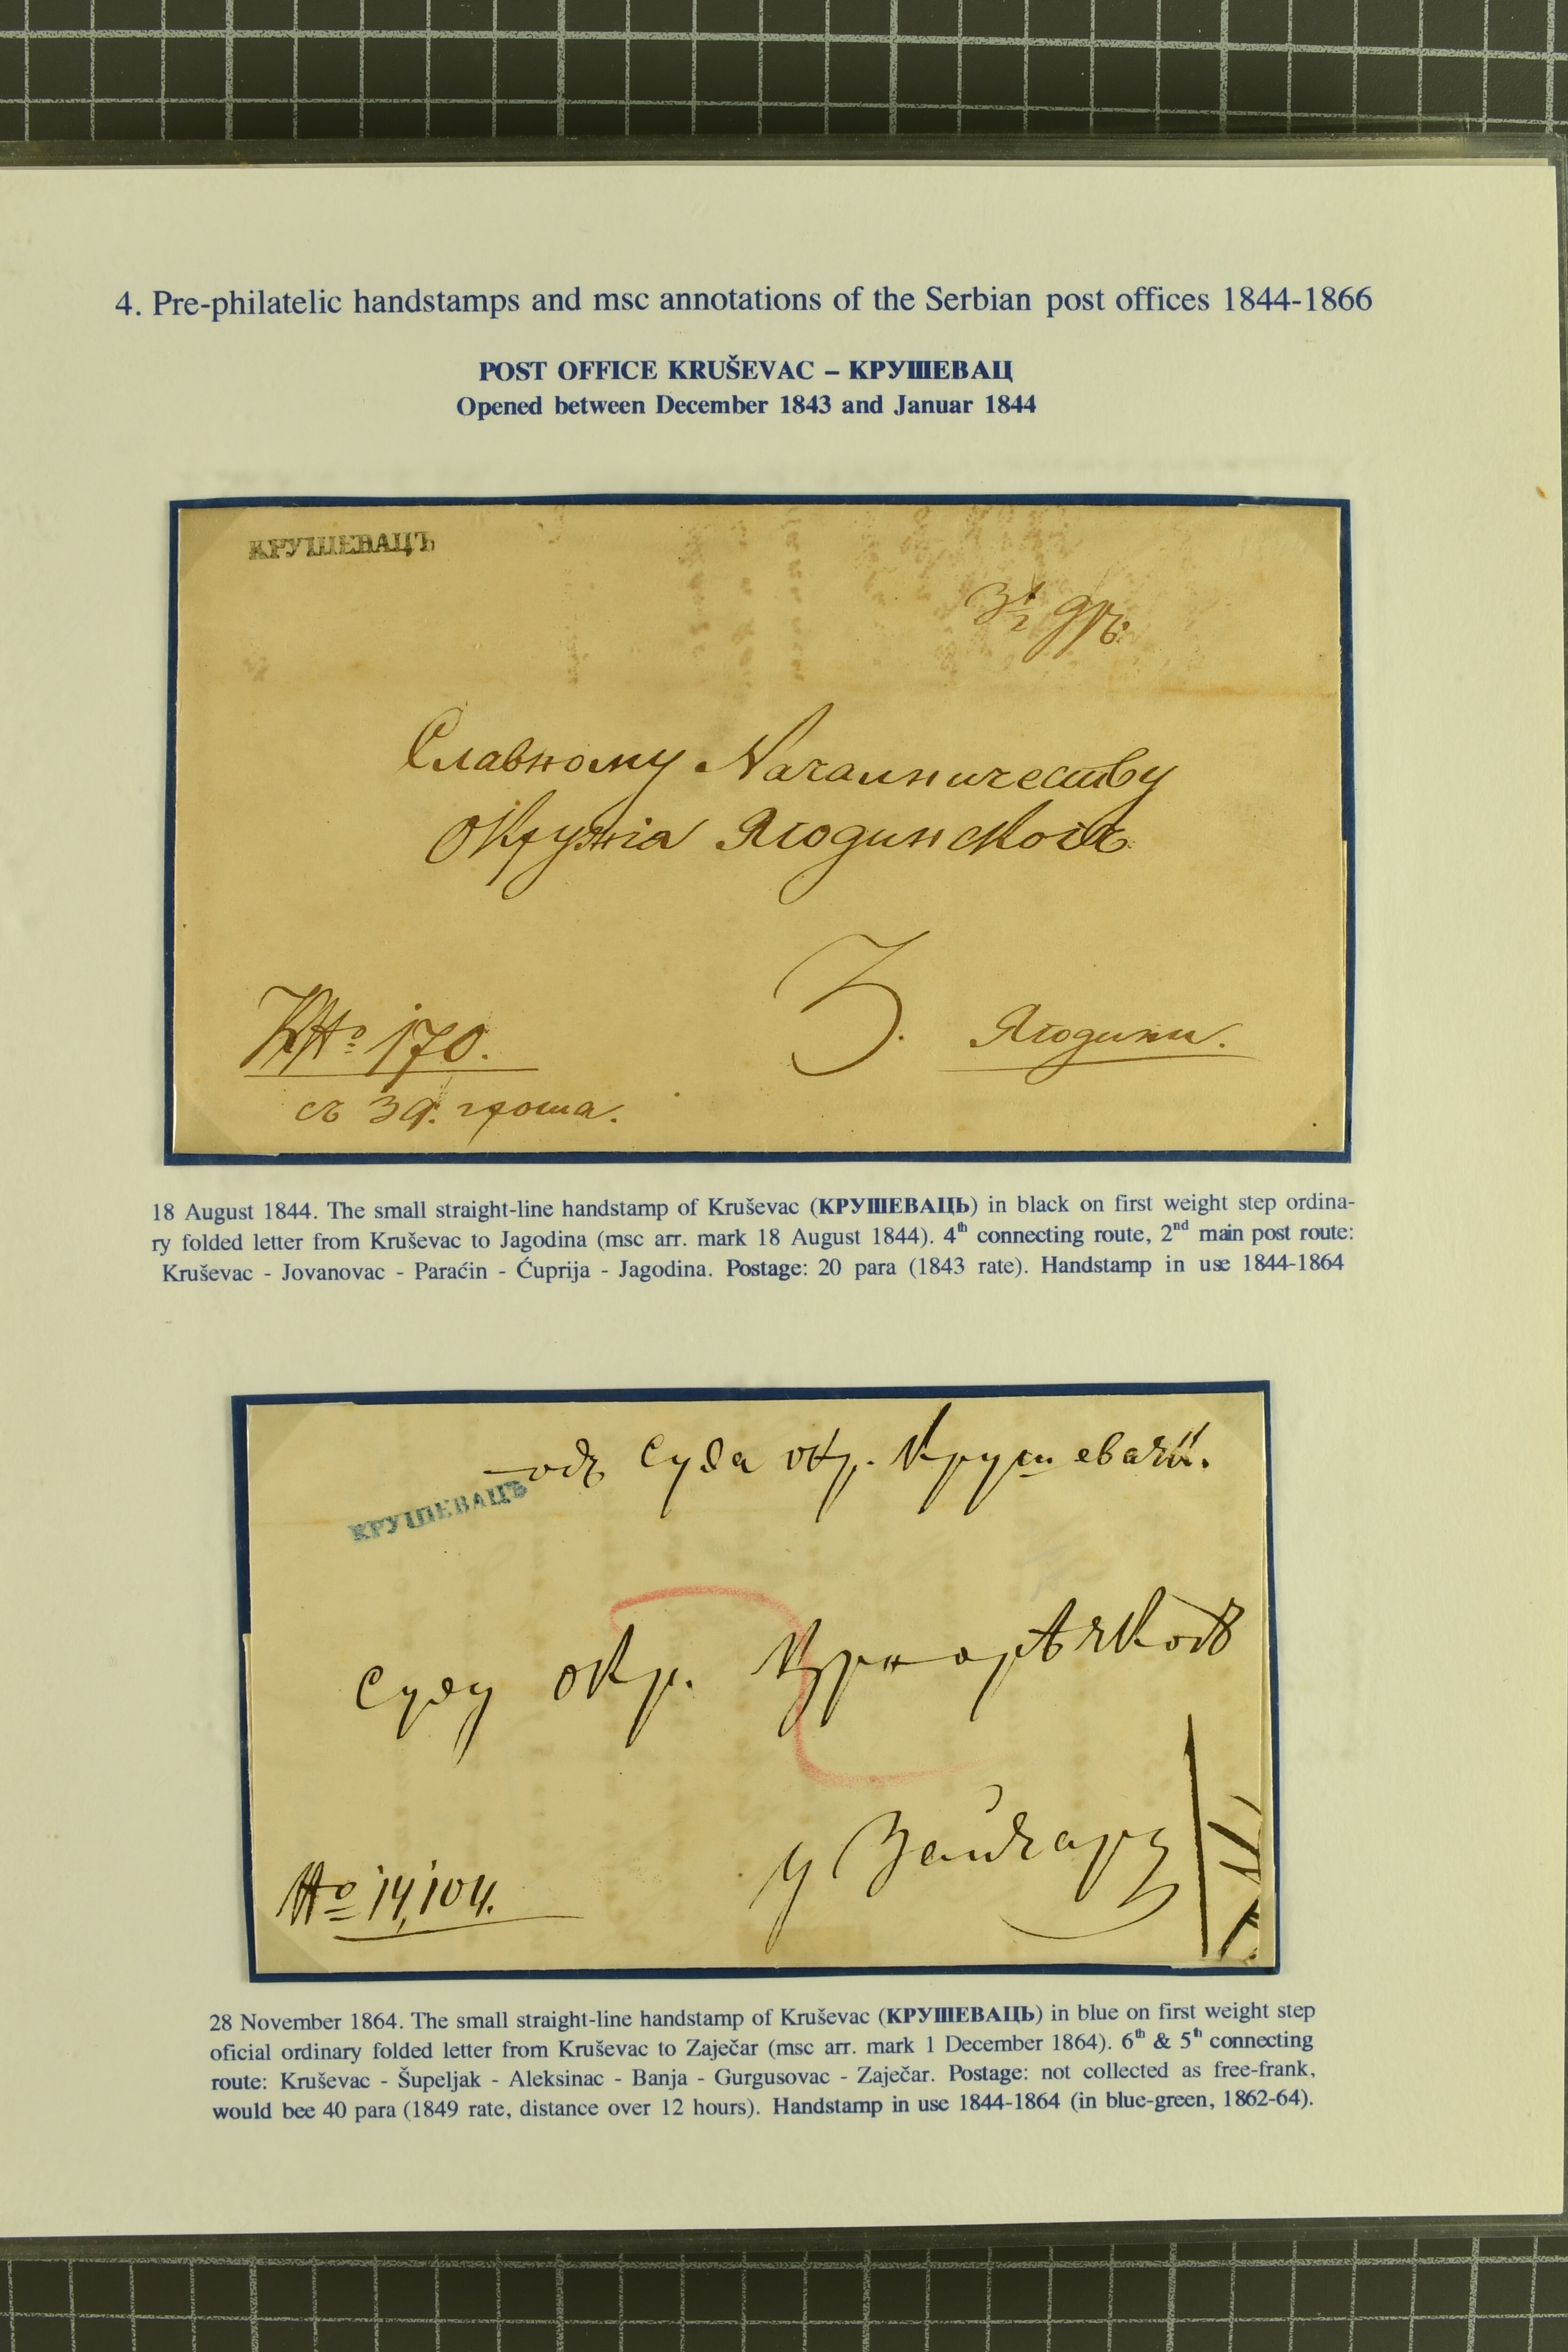 4. Pre-philatelic handstamps and msc annotations of the Serbian post offices 1844-1866
POST OFFICE KRUŠEVAC – КРУШЕВАЦ
Opened between December 1843 and Januar 1844
КРУШЕВАЦЪ
Славному Началничеству
Окружіа Ягодинскогъ
No 170.
Ягодини.
съ гроша.
18 August 1844. The small straight-line handstamp of Kruševac (КРУШЕВАЦЬ) in black on first weight step ordina-
ry folded letter from Kruševac to Jagodina (msc arr. mark 18 August 1844). 4th connecting route, 2nd main post route:
Kruševac - Jovanovac - Paraćin - Ćuprija - Jagodina. Postage: 20 para (1843 rate). Handstamp in use 1844-1864
одъ Суда окр. Крушевачк.
КРУШЕВАЦЪ
Суду окр. Црнорѣчкогъ
у Зайчару
No 14,104.
28 November 1864. The small straight-line handstamp of Kruševac (КРУШЕВАЦЬ) in blue on first weight step
oficial ordinary folded letter from Kruševac to Zaječar (msc arr. mark 1 December 1864). 6th & 5th connecting
route: Kruševac - Šupeljak - Aleksinac - Banja - Gurgusovac - Zaječar. Postage: not collected as free-frank,
would bee 40 para (1849 rate, distance over 12 hours). Handstamp in use 1844-1864 (in blue-green, 1862-64).